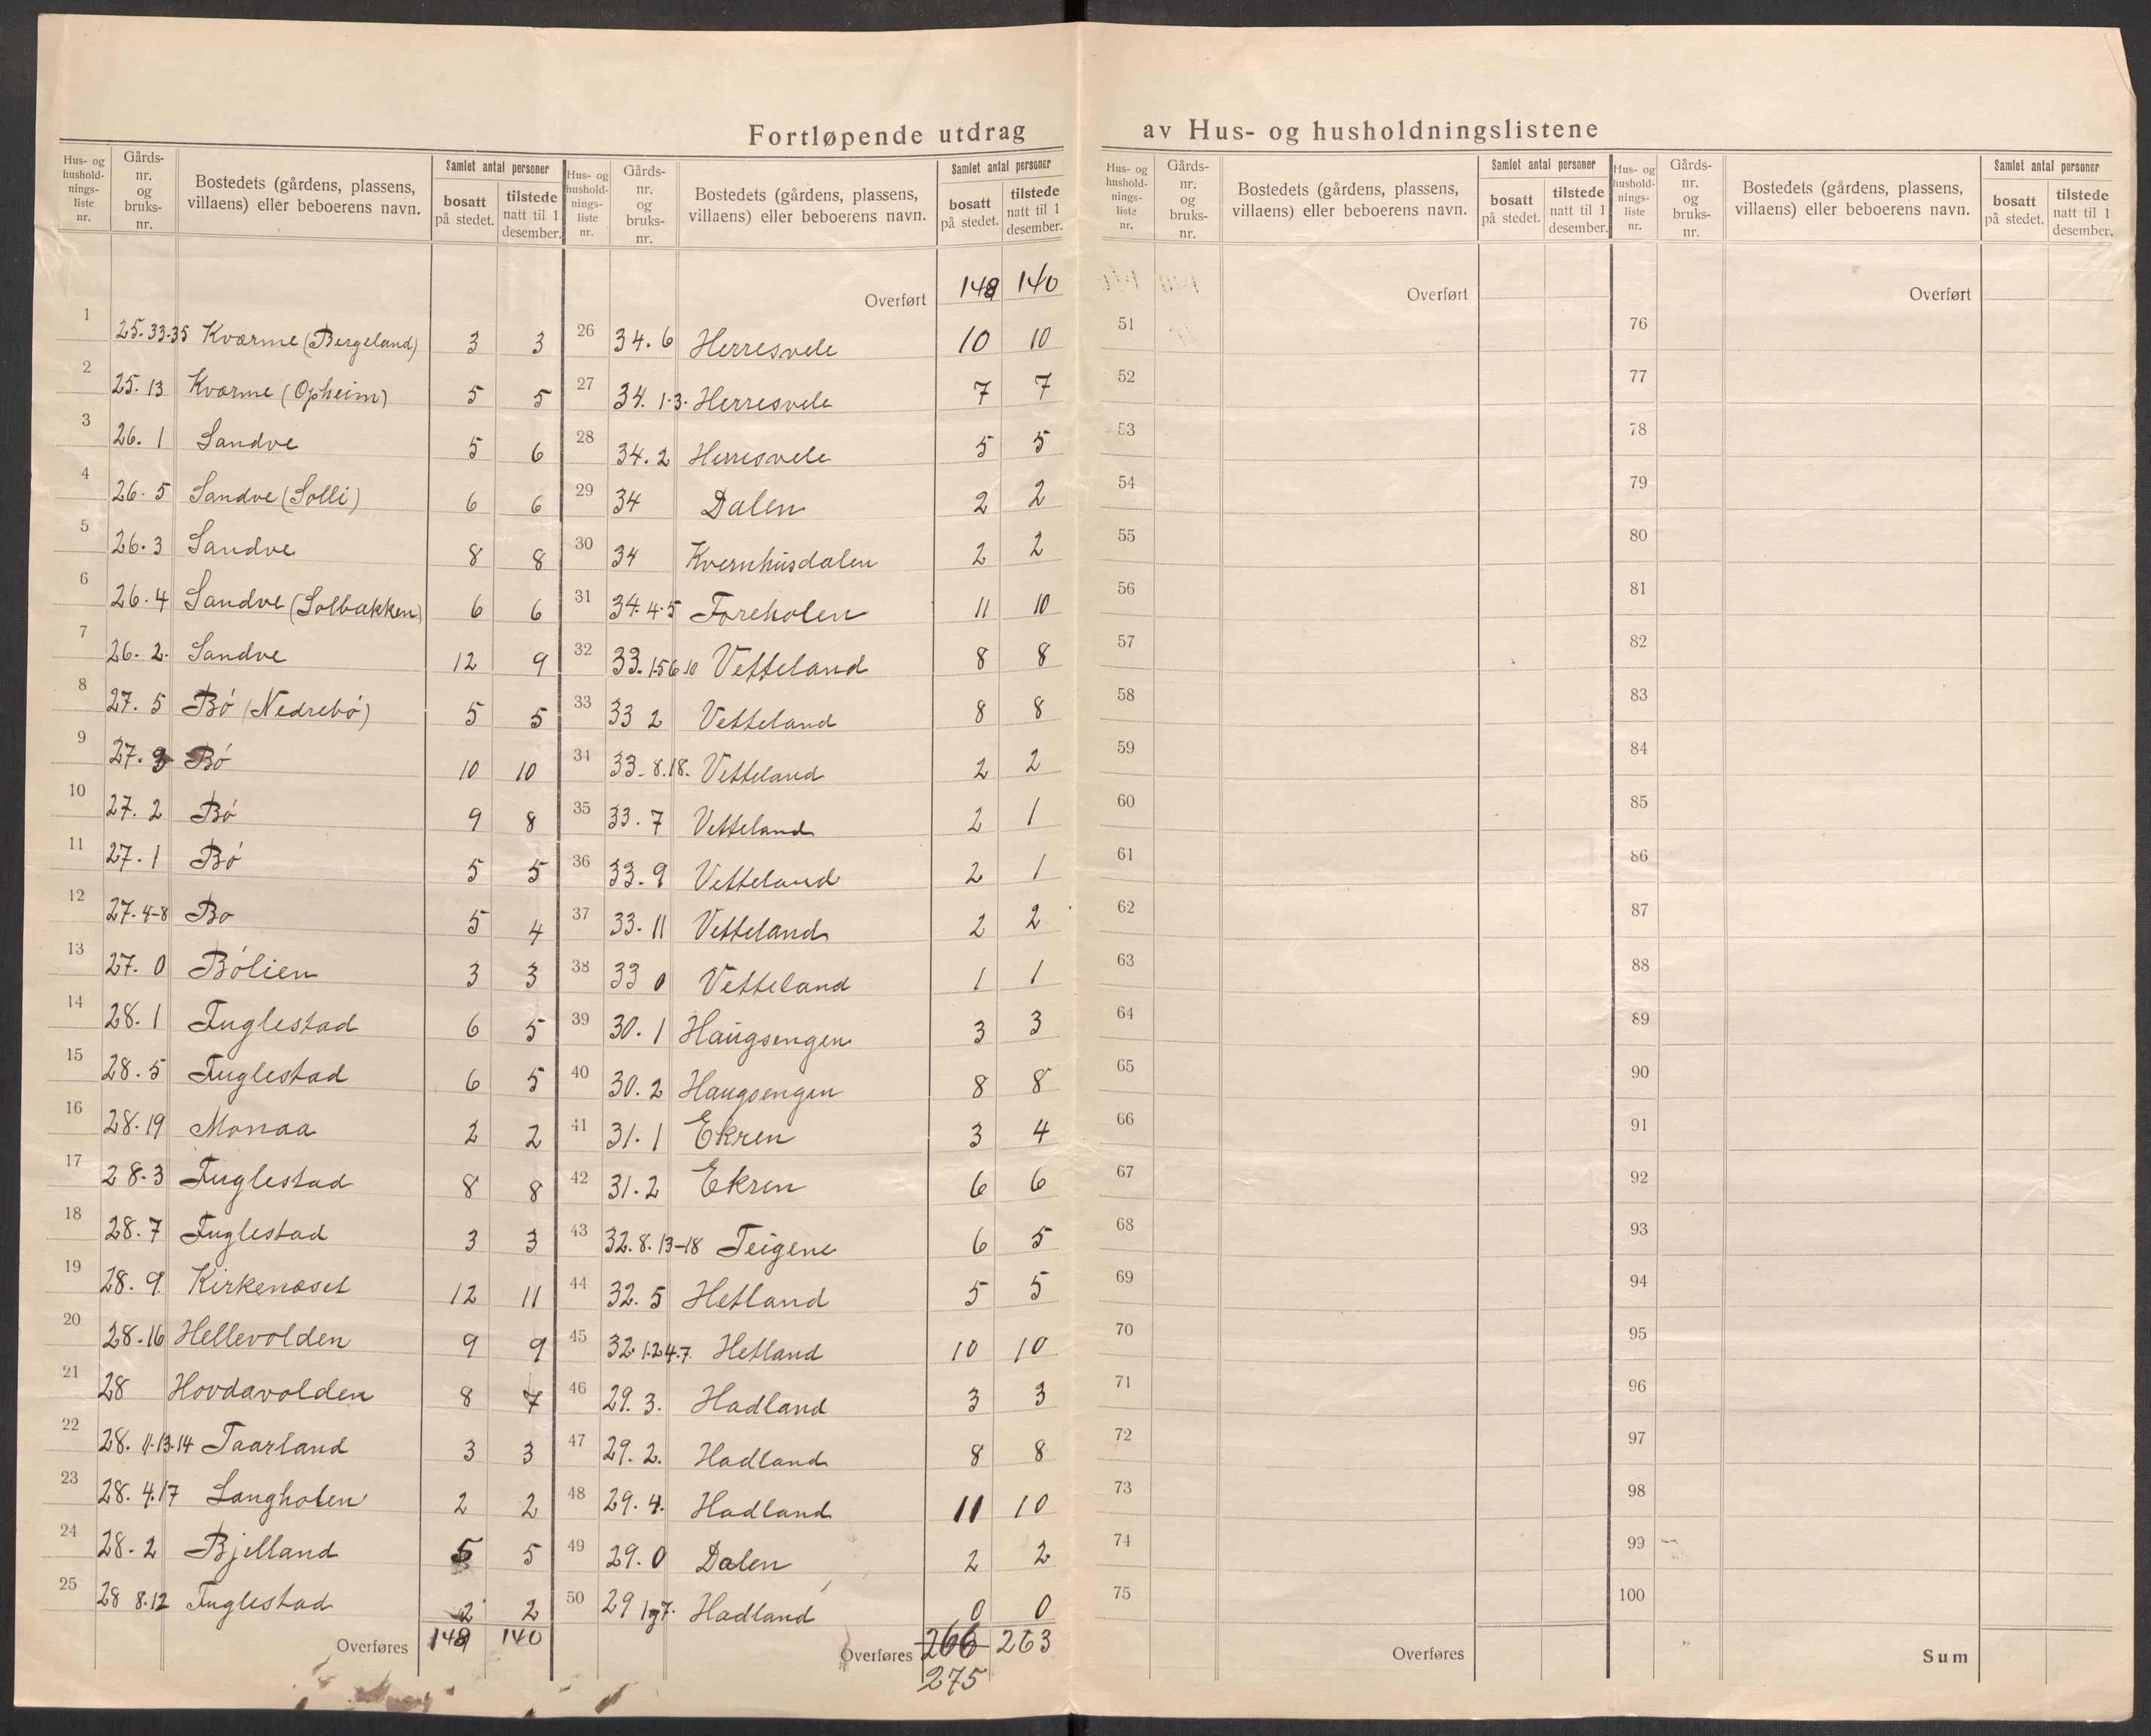 Fortløpende utdrag av Hus- og husholdningslistene
Hus- og hushold- nings- liste nr. | Gårds- nr. og bruks- nr. | Bostedets (gårdens, plassens, villaens) eller beboerens navn. | Samlet antal personer | bosatt på stedet. | tilstede natt til 1 desember.
1 25. 33-35 Kværme (Bergeland) 3 3
2 25. 13 Kværme (Opheim) 5 5
3 26. 1 Sandve 5 6
4 26. 5 Sandve (Solli) 6 6
5 26. 3 Sandve 8 8
6 26. 4 Sandve (Solbakken) 6 6
7 26. 2. Sandve 12 9
8 27. 5 Bø (Nedrebø) 5 5
9 27. 3 Bø 10 10
10 27. 2 Bø 9 8
11 27. 1 Bø 5 5
12 27. 4-8 Bø 5 4
13 27. 0 Bølien 3 3
14 28. 1 Fuglestad 6 5
15 28. 5 Fuglestad 6 5
16 28. 19 Monaa 2 2
17 28. 3 Fuglestad 8 8
18 28. 7 Fuglestad 3 3
19 28. 9. Kirkenæset 12 11
20 28. 16 Hellevolden 9 9
21 28 Hovdavolden 8 7
22 28. 11.13.14 Taarland 3 3
23 28. 4.17 Langholen 2 2
24 28. 2 Bjelland 5 5
25 28 8.12 Fuglestad 2 2
Overføres 148 140
Hus- og hushold- nings- liste nr. | Gårds- nr. og bruks- nr. | Bostedets (gårdens, plassens, villaens) eller beboerens navn. | Samlet antal personer | bosatt på stedet. | tilstede natt til 1 desember.
Overført 148 140
26 34. 6 Herresvele 10 10
27 34. 1.3. Herresvele 7 7
28 34. 2 Herresvele 5 5
29 34 Dalen 2 2
30 34 Kvernhusdalen 2 2
31 34. 4.5 Foreholen 11 10
32 33. 1.5 6 10 Vetteland 8 8
33 33 2 Vetteland 8 8
34 33. 8.18. Vetteland 2 2
35 33. 7 Vetteland 2 1
36 33. 9 Vetteland 2 1
37 33. 11 Vetteland 2 2
38 33 0 Vetteland 1 1
39 30. 1 Haugsengen 3 3
40 30. 2 Haugsengen 8 8
41 31. 1 Ekren 3 4
42 31. 2 Ekren 6 6
43 32. 8. 13-18 Teigene 6 5
44 32. 5 Hetland 5 5
45 32. 1.2 4.7. Hetland 10 10
46 29. 3. Hadland 3 3
47 29. 2. Hadland 8 8
48 29. 4. Hadland 11 10
49 29. 0 Dalen 2 2
50 29 Hadland 0 0
Overføres 266 263
275
Hus- og hushold- nings- liste nr. | Gårds- nr. og bruks- nr. | Bostedets (gårdens, plassens, villaens) eller beboerens navn. | Samlet antal personer | bosatt på stedet. | tilstede natt til 1 desember.
Overført
51
52
53
54
55
56
57
58
59
60
61
62
63
64
65
66
67
68
69
70
71
72
73
74
75
Overføres
Hus- og hushold- nings- liste nr. | Gårds- nr. og bruks- nr. | Bostedets (gårdens, plassens, villaens) eller beboerens navn. | Samlet antal personer | bosatt på stedet. | tilstede natt til 1 desember.
Overført
76
77
78
79
80
81
82
83
84
85
86
87
88
89
90
91
92
93
94
95
96
97
98
99
100
Sum